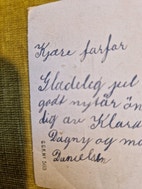 Kjære farfar
Gladeleg jul
godt nytår ön
dig av Klara
Dagny og mo
Danielsen